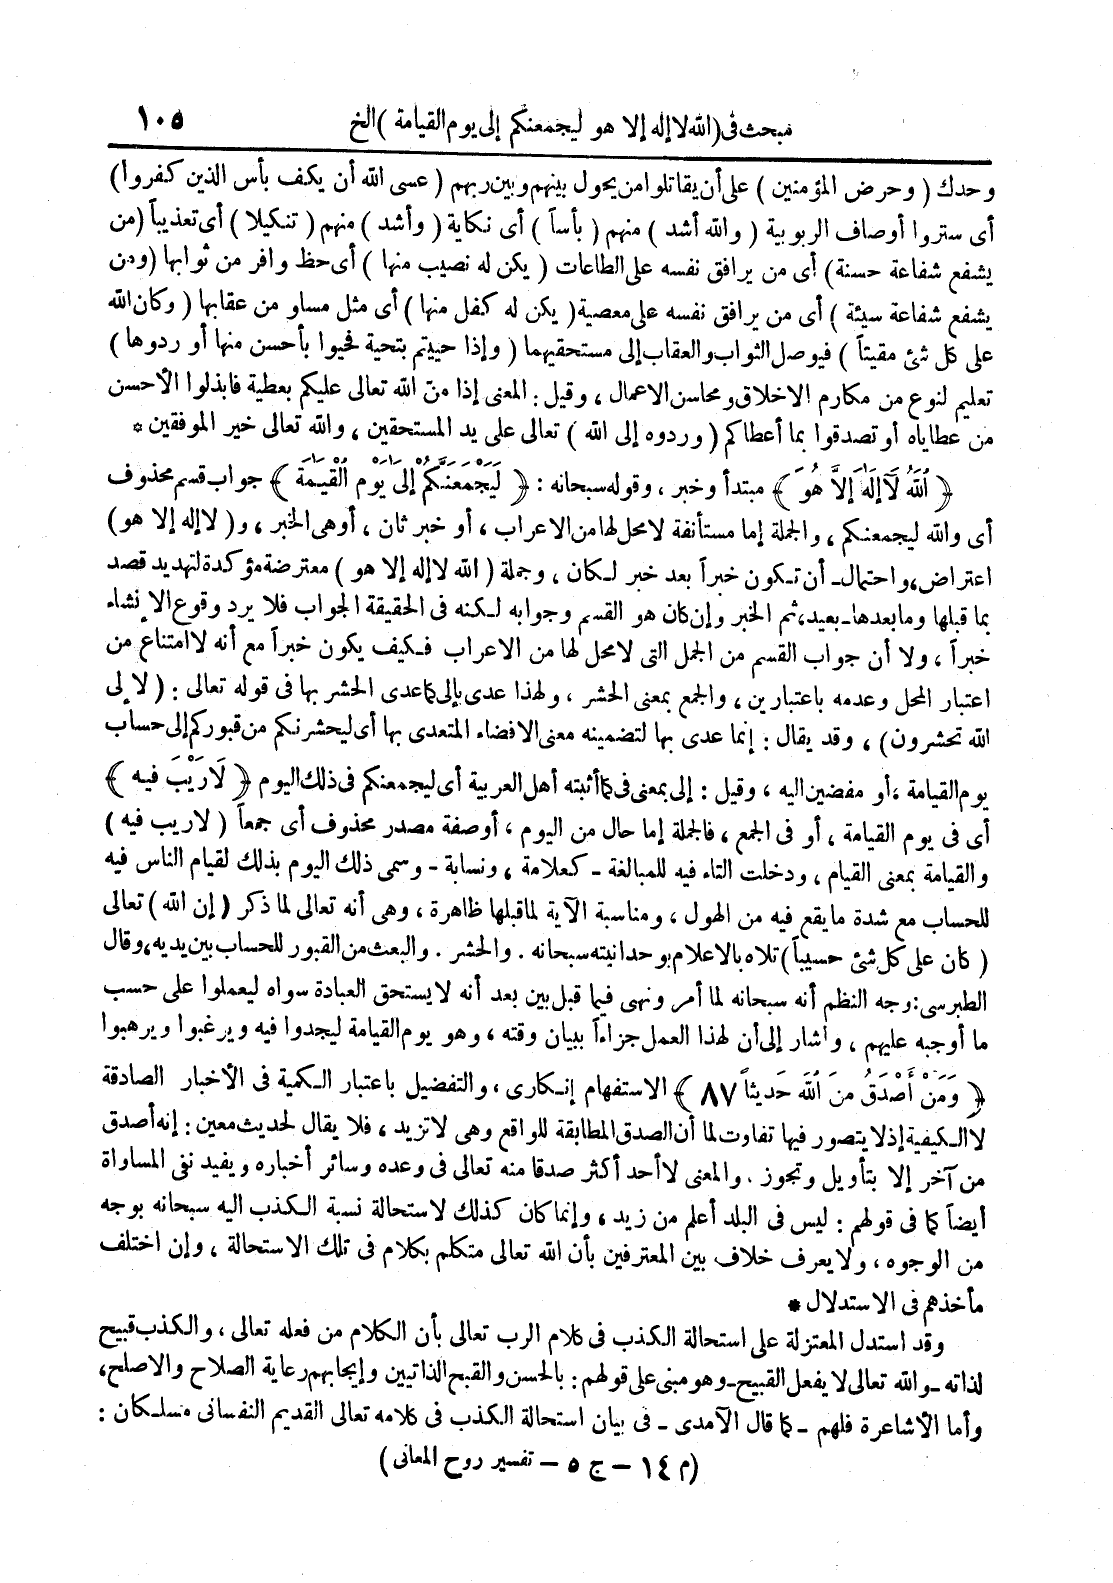 مبحث فى (الله لا إله إلا هو ليجمعنكم إلى يوم القيامة) الخ ١٠٥
وحدك (وحرض المؤمنين) على أن يقاتلوا من يحول بينهم وبين ربهم (عسى الله أن يكف بأس الذين كفروا)
أى ستروا أوصاف الربوبية (والله أشد) منهم (بأساً) أى نكاية (وأشد) منهم (تنكيلا) أى تعذيباً (من
يشفع شفاعة حسنة) أى من يرافق نفسه على الطاعات (يكن له نصيب منها) أى حظ وافر من ثوابها (ومن
يشفع شفاعة سيئة) أى من يرافق نفسه على معصية (يكن له كفل منها) أى مثل مساو من عقابها (وكان الله
على كل شئ مقيتاً) فيوصل الثواب والعقاب إلى مستحقيهما (وإذا حييتم بتحية فحيوا بأحسن منها أو ردوها)
تعليم لنوع من مكارم الاخلاق ومحاسن الاعمال، وقيل: المعنى إذا منّ الله تعالى عليكم بعطية فابذلوا الأحسن
من عطاياه أو تصدقوا بما أعطاكم (وردوه إلى الله) تعالى على يد المستحقين، والله تعالى خير الموفقين *
﴿ ٱللَّهُ لَآإِلَٰهَ إِلَّا هُوَ ﴾ مبتدأ وخبر، وقوله سبحانه: ﴿ لَيَجْمَعَنَّكُمْ إِلَىٰ يَوْمِ الْقِيَٰمَةِ ﴾ جواب قسم محذوف
أى والله ليجمعنكم، والجملة إما مستأنفة لا محل لها من الاعراب، أو خبر ثان، أو هى الخبر، و(لا إله إلا هو)
اعتراض، واحتمال ـ أن تكون خبراً بعد خبر لكان، وجملة (الله لا إله إلا هو) معترضة مؤكدة لتهديد قصد
بما قبلها وما بعدها ـ بعيد، ثم الخبر وإن كان هو القسم وجوابه لكنه فى الحقيقة الجواب فلا يرد وقوع الإنشاء
خبراً، ولا أن جواب القسم من الجمل التى لا محل لها من الاعراب فكيف يكون خبراً مع أنه لا امتناع من
اعتبار المحل وعدمه باعتبارين، والجمع بمعنى الحشر، ولهذا عدى بإلى كما عدى الحشر بها فى قوله تعالى: (لإلى
الله تحشرون)، وقد يقال: إنما عدى بها لتضمينه معنى الافضاء المتعدى بها أى ليحشرنكم من قبوركم إلى حساب
يوم القيامة، أو مفضين اليه، وقيل: إلى بمعنى فى كما أثبته أهل العربية أى ليجمعنكم فى ذلك اليوم ﴿ لَارَيْبَ فِيهِ ﴾
أى فى يوم القيامة، أو فى الجمع، فالجملة إما حال من اليوم، أو صفة مصدر محذوف أى جمعاً (لا ريب فيه)
والقيامة بمعنى القيام، ودخلت التاء فيه للمبالغة ـ كعلامة، ونسابة ـ وسمى ذلك اليوم بذلك لقيام الناس فيه
للحساب مع شدة ما يقع فيه من الهول، ومناسبة الآية لما قبلها ظاهرة، وهى أنه تعالى لما ذكر (إن الله) تعالى
(كان على كل شئ حسيباً) تلاه بالاعلام بوحدانيته سبحانه. والحشر. والبعث من القبور للحساب بين يديه، وقال
الطبرسى: وجه النظم أنه سبحانه لما أمر ونهى فيما قبل بين بعد أنه لا يستحق العبادة سواه ليعملوا على حسب
ما أوجبه عليهم، وأشار إلى أن لهذا العمل جزاءاً ببيان وقته، وهو يوم القيامة ليجدوا فيه ويرغبوا ويرهبوا
﴿ وَمَنْ أَصْدَقُ مِنَ ٱللَّهِ حَدِيثاً ٨٧ ﴾ الاستفهام إنكارى، والتفضيل باعتبار الكمية فى الأخبار الصادقة
لا الكيفية إذ لا يتصور فيها تفاوت لما أن الصدق المطابقة للواقع وهى لا تزيد، فلا يقال لحديث معين: إنه أصدق
من آخر إلا بتأويل وتجوز. والمعنى لا أحد أكثر صدقا منه تعالى فى وعده وسائر أخباره ويفيد نفى المساواة
أيضاً كما فى قولهم: ليس فى البلد أعلم من زيد، وإنما كان كذلك لاستحالة نسبة الكذب اليه سبحانه بوجه
من الوجوه، ولا يعرف خلاف بين المعترفين بأن الله تعالى متكلم بكلام فى تلك الاستحالة، وإن اختلف
مأخذهم فى الاستدلال *
وقد استدل المعتزلة على استحالة الكذب فى كلام الرب تعالى بأن الكلام من فعله تعالى، والكذب قبيح
لذاته ـ والله تعالى لا يفعل القبيح ـ وهو مبنى على قولهم: بالحسن والقبح الذاتيين وإيجابهم رعاية الصلاح والاصلح،
وأما الأشاعرة فلهم ـ كما قال الآمدى ـ فى بيان استحالة الكذب فى كلامه تعالى القديم النفسانى مسلكان:
(م ١٤ – ج ٥ – تفسير روح المعانى)